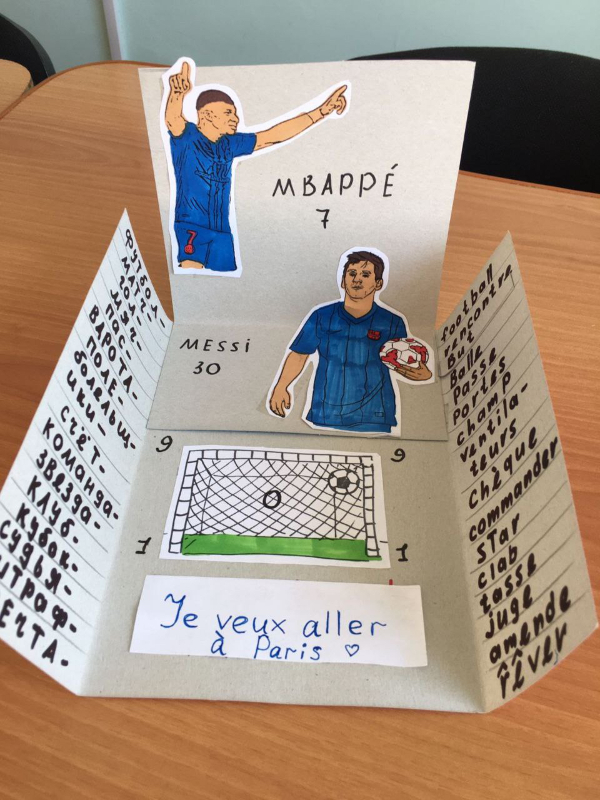 MBAPPÉ
7
MESSI
30
ФУТБОЛ-
МАТЧ-
ГОЛ-
МЯЧ-
ПАС-
ВАРОТА-
ПОЛЕ-
болельщ-
ики-
СЧЁТ-
КОМАНДА-
ЗВЕЗДА-
КЛУБ-
КУБОК-
СУДЬЯ-
ШТРАФ-
ЕЧТА-
football
rencontre
But
Balle
Passe
portes
champ
ventila-
teurs
chèque
commander
star
clab
tasse
juge
amende
rêver
9 9
0
1 1
Je veux aller
à Paris ♡